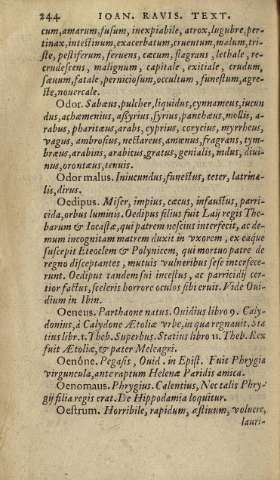 244 IOAN. RAVIS. TEXT.
cum, amarum, fusum, inexpiabile, atrox, lugubre, per-
tinax, intestinum, exacerbatum, cruentum, malum, tri-
ste, pestiferum, feruens, cæcum, flagrans, lethale, re-
crudescens, malignum, capitale, exitiale, crudum,
sæuum, fatale, perniciosum, occultum, funestum, agre-
ste, nouercale.
Odor. Sabæus, pulcher, liquidus, cynnameus, iucun
dus, achæmenius, assyrius, syrius, panthæus, mollis, a-
rabus, pharitæus, arabs, cyprius, corycius, myrrheus,
vagus, ambrosius, nectareus, amœnus, fragrans, tym-
bræus, arabinus, arabicus, gratus, genialis, indus, diui-
nus, orontæus, tenuis.
Odor malus. Iniucundus, funestus, teter, latrina-
lis, dirus.
Oedipus. Miser, impius, cæcus, infaustus, parri-
cida, orbus luminis. Oedipus filius fuit Laij regis The-
barum & Iocastæ, qui patrem nescius interfecit, ac de-
mum incognitam matrem duxit in vxorem, ex eaque
suscepit Eteoclem & Polynicem, qui mortuo patre de
regno disceptantes, mutuis vulneribus sese interfece-
runt. Oedipus tandem sui incestus, ac parricidij cer-
tior factus, sceleris horrore oculos sibi eruit. Vide Oui-
dium in Ibin.
Oeneus. Parthaone natus. Ouidius libro 9. Caly-
donius, à Calydone Ætoliæ vrbe, in qua regnauit. Sta
tius libr. 1. Theb. Superbus. Statius libro 11. Theb. Rex
fuit Ætoliæ, & pater Meleagri.
Oenône. Pegasis, Ouid. in Epist. Fuit Phrygia
virguncula, ante raptum Helenæ Paridis amica.
Oenomaus. Phrygius. Calentius, Nos talis Phry-
gij filia regis erat. De Hippodamia loquitur.
Oestrum. Horribile, rapidum, æstiuum, volucre,
lauri-